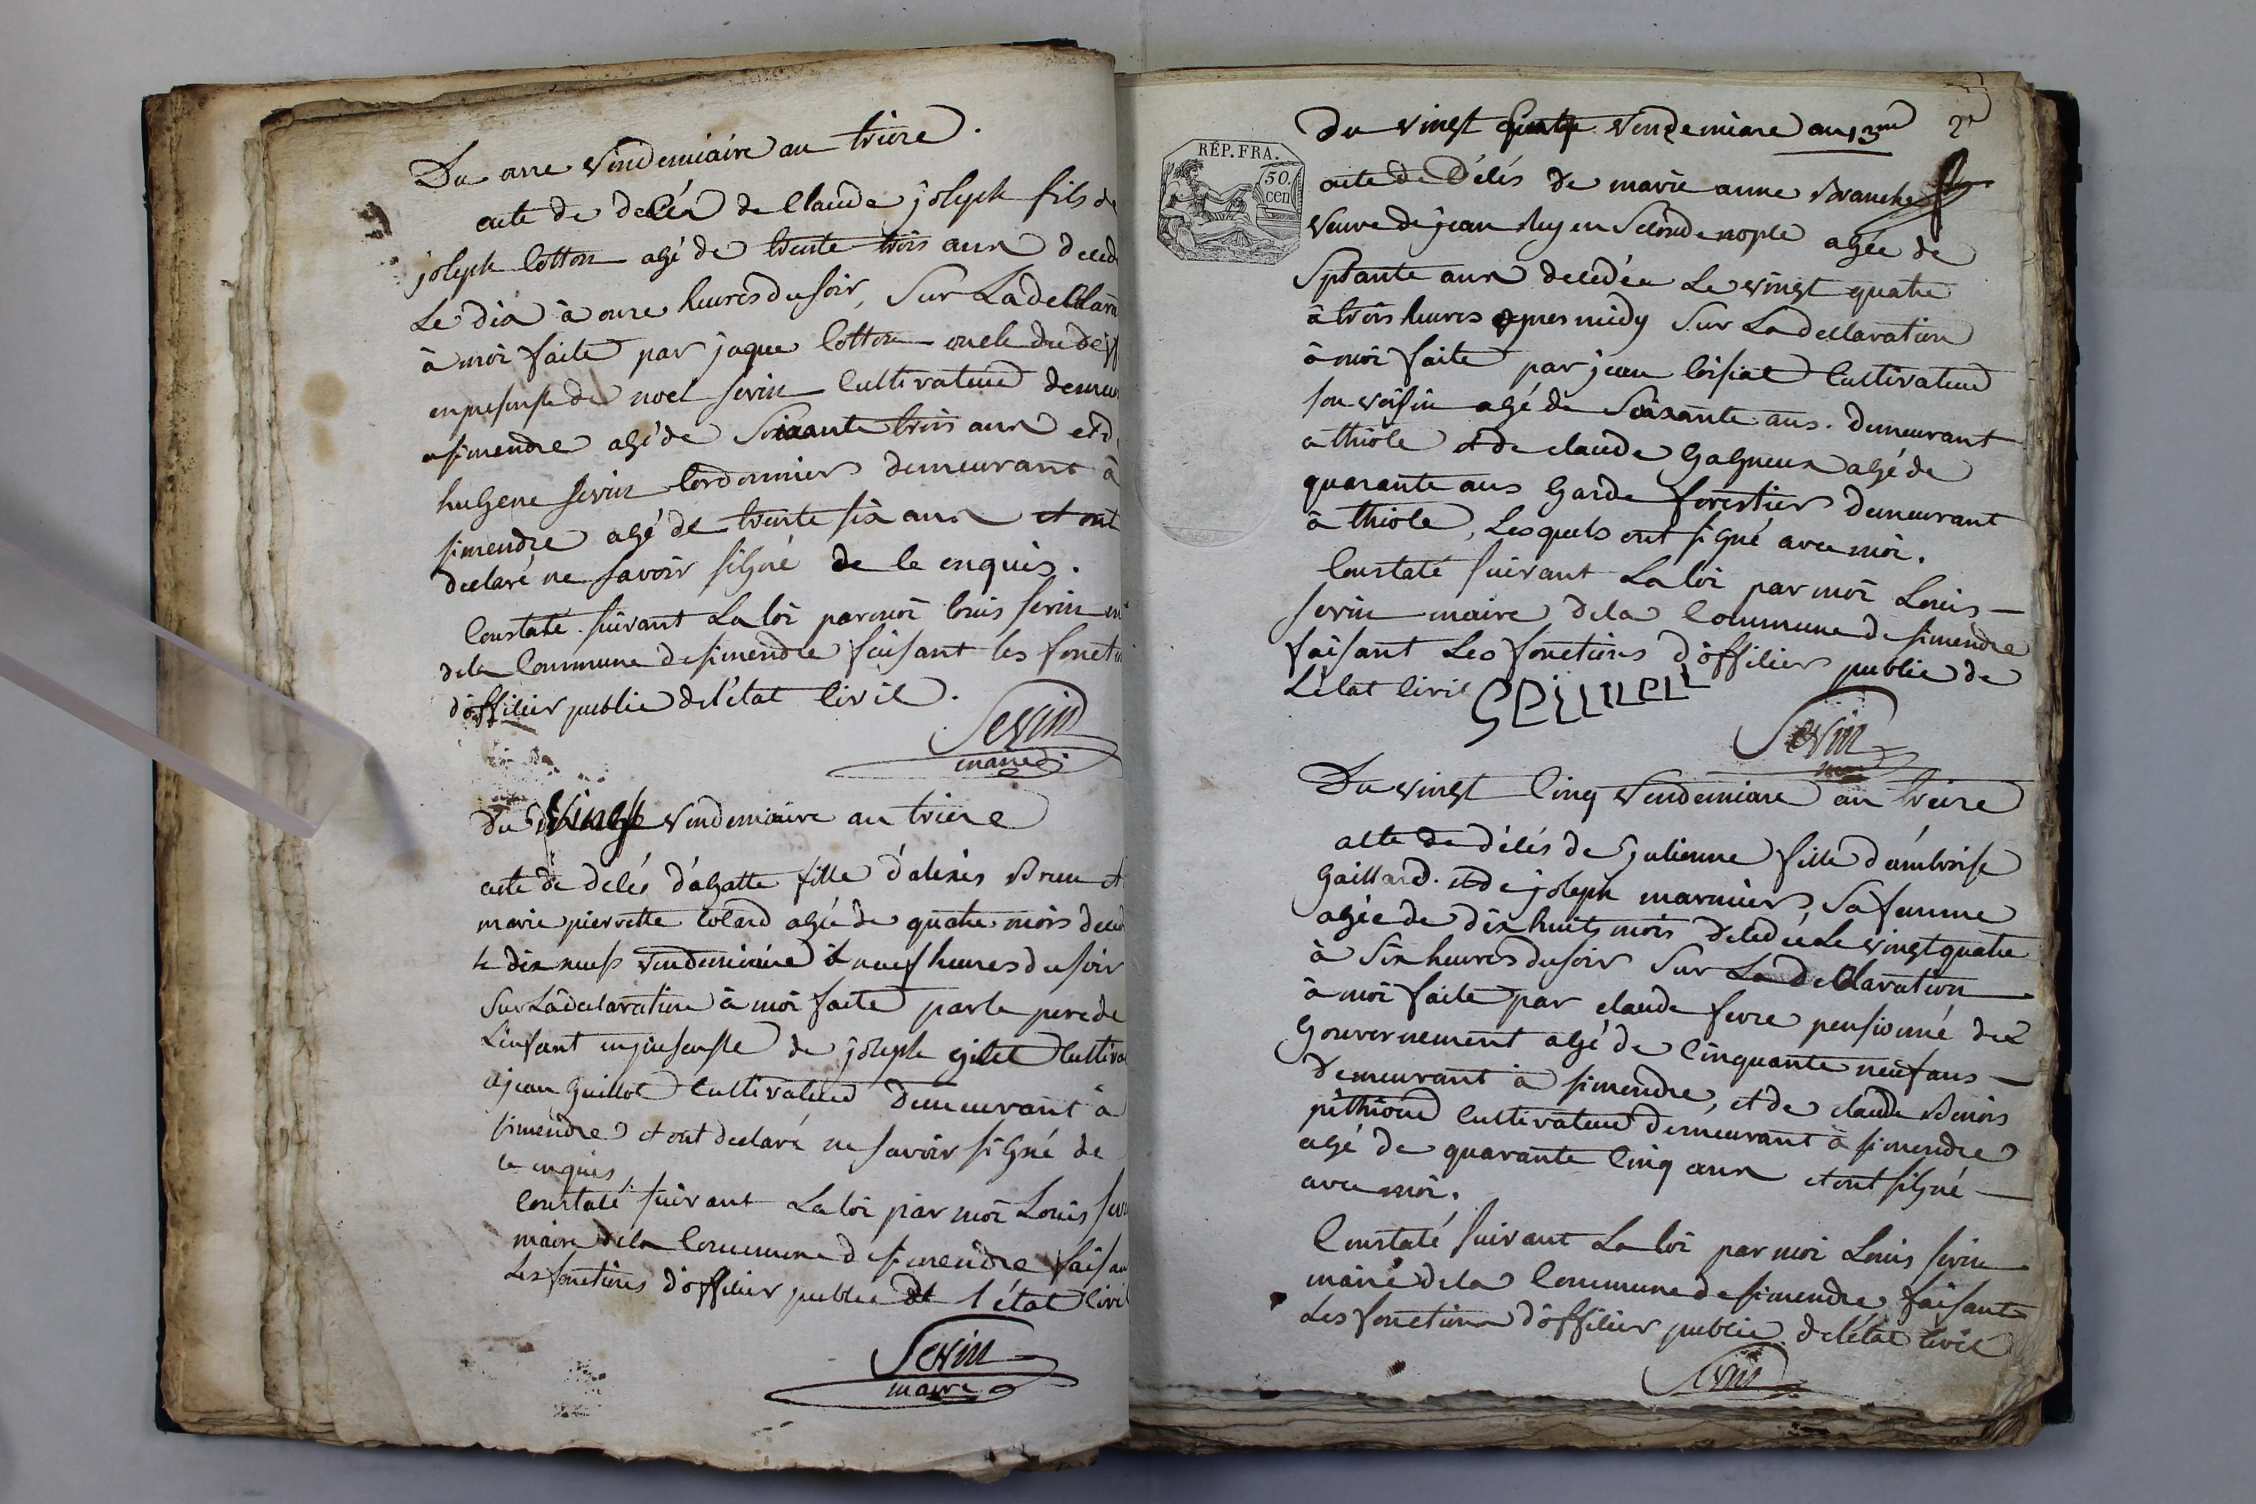 Du onze vendemiaire an treize.
acte de decés de Claude joseph fils de
joseph Cotton agé de trente trois ans deced
Le dix à onze heures du soir, Sur La declara
à moi faite par jaque Cotton oncle du
en presensse de noel sevin Cultivateur demeu
a simendre agé de Soixante trois ans et d
huGene sevin Cordonnier demeurant à
simendre agé de trente six ans et ont
declaré ne savoir siGné de ce enquis.
Constaté suivant La loi par moi louis sevin
de la Commune de simendre faisant les foncti
d'offilier public de l'état Civil.
Sevin
maire
Du vingt vendemiaire an treize
acte de decés d'aGatte fille d'alexis Brun et
marie pierrette Colard agée de quatre mois deced
le dix neuf vendemiaire à neuf heures du soir
Sur La declaration à moi faite par le pere de
L'enfant en presensse de joseph gilet Cultiva
et jean Guillot Cultivateur demeurant à
simendre et ont declaré ne savoir siGné de
ce enquis.
Constaté suivant La loi par moi Louis sev
maire de la Commune de simendre faisan
Les fonctions d'offilier public de l'état Civil
Sevin
maire
2e
Du vingt quatre vendemiare an 13me
RÉP. FRA.
50 cen
acte de Décés de marie anne Branche
veuve de jean Ruy en Seconde nople agée de
Sptante ans decedée Le vingt quatre
à trois heures apres midy Sur La declaration
à moi faite par jean loisiat Cultivateur
son voisin agé de Soixante ans. demeurant
a thiole et de claude Gagneux agé de
quarante ans Garde forestier demeurant
à thiole, Lesquels ont siGné avec moi.
Constaté suivant La loi par moi Louis
sevin maire de la Commune de simendre
faisant Les fonctions d'offilier public de
L'état Civil
Sevin
Du vingt Cinq vendemiare an treize
acte de décés de Julienne fille d'ambroise
Gaillard. et de joseph marmier, Sa femme
agée de dix huit mois decedée Le vingt quatre
à Six heures du soir Sur La declaration
à moi faite par claude fevre pensionné de
Gouvernement agé de Cinquante neuf ans
demeurant à simendre, et de claude Benois
pithioud Cultivateur demeurant à simendre
agé de quarante Cinq ans et ont siGné
avec moi.
Constaté suivant La loi par moi Louis sevin
maire de la Commune de simendre faisant
Les fonctions d'offilier public. de l'état Civil
Sevin